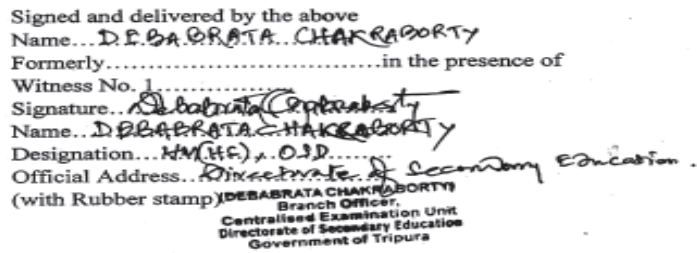 Signed and delivered by the above
Name...DEBABRATA CHAKRABORTY
Formerly..................................in the presence of
Witness No. 1................
Signature...Debabrata Chakraborty
Name...DEBABRATA CHAKRABORTY
Designation...HM(HS), OSD.......
Official Address...Directorate of Secondary Education.
(with Rubber stamp) (DEBABRATA CHAKRABORTY)
Branch Officer,
Centralised Examination Unit
Directorate of Secondary Education
Government of Tripura